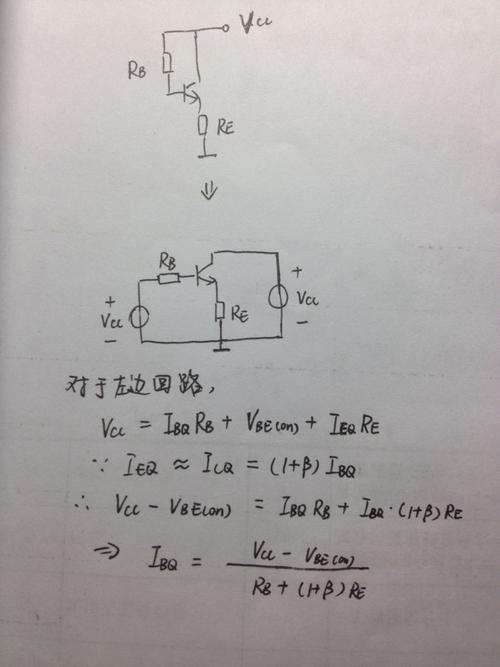 Vcc
RB
RE
⇓
RB
+
Vcc
−
RE
+
Vcc
−
对于左边回路,
Vcc = IBQ RB + VBE(on) + IEQ RE
∵ IEQ ≈ ICQ = (1+β) IBQ
∴ Vcc − VBE(on) = IBQ RB + IBQ·(1+β) RE
⇒ IBQ = Vcc − VBE(on)
RB + (1+β) RE